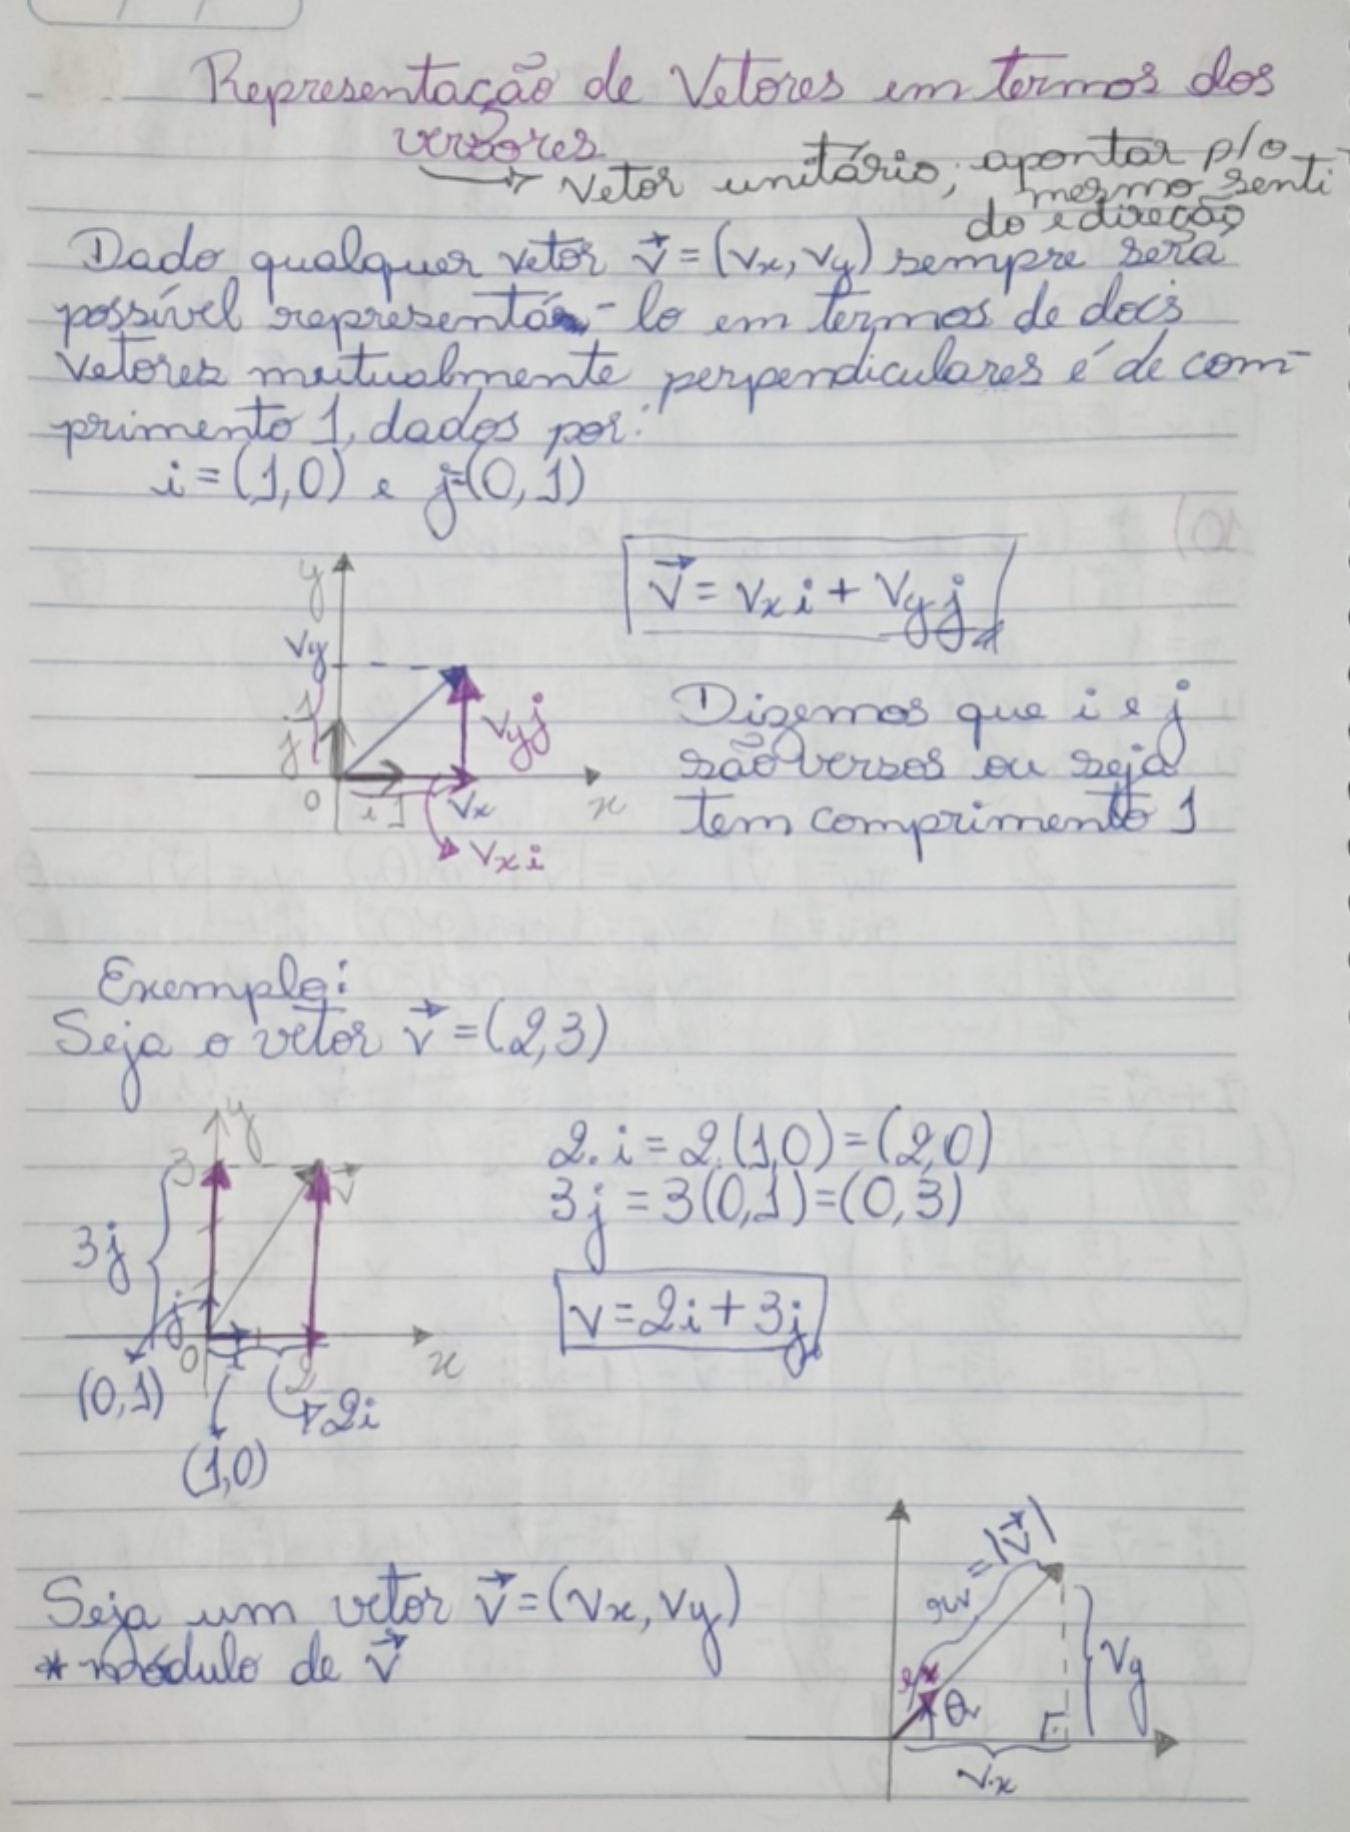 Representação de Vetores em termos dos
versores
→ Vetor unitário; apontar p/ o
mesmo senti
do e direção
Dado qualquer vetor v⃗ = (vx, vy) sempre será
possível representá-lo em termos de dois
vetores mutualmente perpendiculares é de com-
primento 1, dados por:
i = (1,0) e j=(0,1)
y
v⃗ = vx i + vy j
vy
1
j
vy j
0
i 1
vx
x
vx i
Dizemos que i e j
são versos ou seja
tem comprimento 1
Exemplo:
Seja o vetor v⃗ = (2,3)
y
3
v⃗
3j
j
0
2
x
(0,1)
2i
(1,0)
2.i = 2.(1,0) = (2,0)
3j = 3(0,1) = (0,3)
v = 2i + 3j
Seja um vetor v⃗ = (vx, vy)
* módulo de v⃗
= |v⃗|
vy
θv
vx